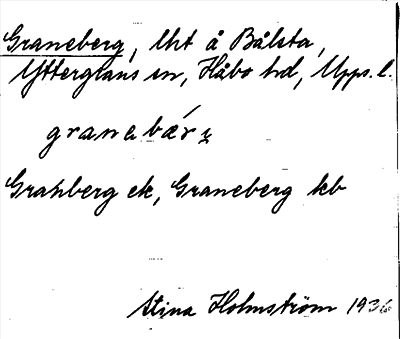 Graneberg, lht å Bålsta,
Ytterglans sn, Håbo hd, Upps. l.
granebǽrɣ
Granberg ek, Graneberg kb
Stina Holmström 1936